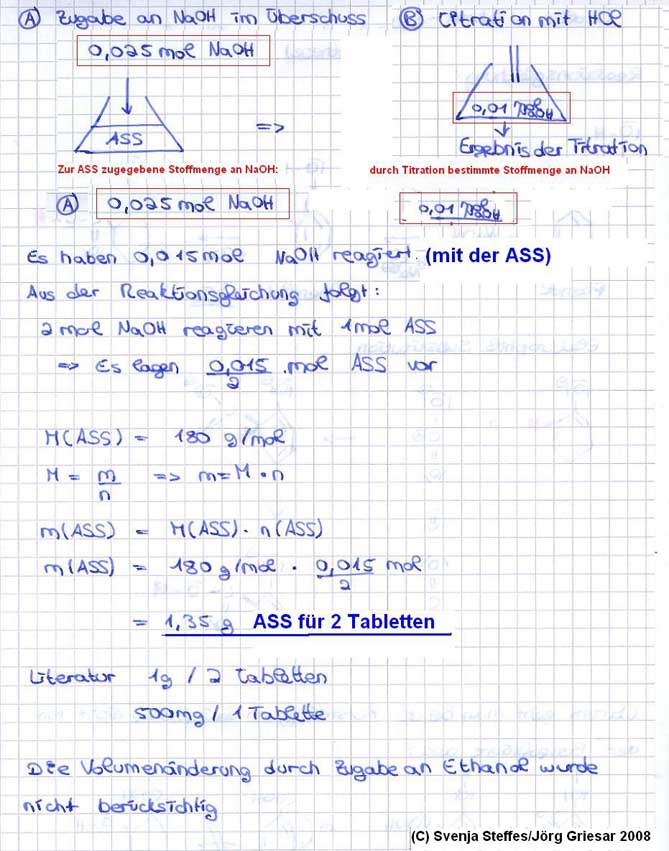 Ⓐ Zugabe an NaOH im Überschuss
0,025 mol NaOH
ASS
=>
Ⓑ Titration mit HCl
0,01 mol NaOH
Ergebnis der Titration
Zur ASS zugegebene Stoffmenge an NaOH:
durch Titration bestimmte Stoffmenge an NaOH
Ⓐ 0,025 mol NaOH
0,01 mol NaOH
Es haben 0,015 mol NaOH reagiert. (mit der ASS)
Aus der Reaktionsgleichung folgt:
2 mol NaOH reagieren mit 1 mol ASS
=> Es lagen 0,015/2 mol ASS vor
M(ASS) = 180 g/mol
M = m/n => m = M · n
m(ASS) = M(ASS) · n(ASS)
m(ASS) = 180 g/mol · 0,015/2 mol
= 1,35 g ASS für 2 Tabletten
Literatur 1g / 2 Tabletten
500mg / 1 Tablette
Die Volumenänderung durch Zugabe an Ethanol wurde
nicht berücksichtig
(C) Svenja Steffes/Jörg Griesar 2008